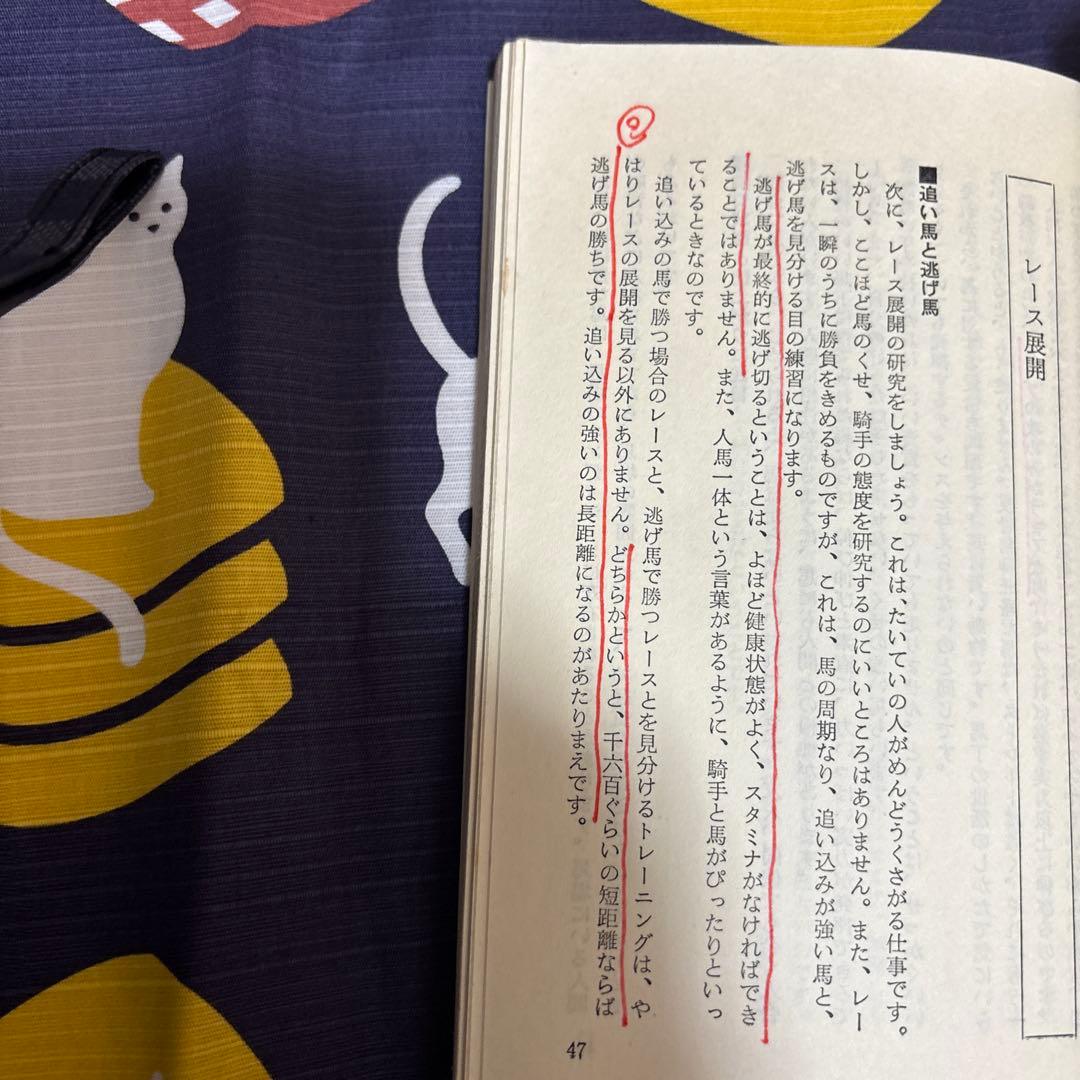 レース展開
■追い馬と逃げ馬
次に、レース展開の研究をしましょう。これは、たいていの人がめんどうくさがる仕事です。
しかし、ここほど馬のくせ、騎手の態度を研究するのにいいところはありません。また、レー
スは、一瞬のうちに勝負をきめるものですが、これは、馬の周期なり、追い込みが強い馬と、
逃げ馬を見分ける目の練習になります。
逃げ馬が最終的に逃げ切るということは、よほど健康状態がよく、スタミナがなければでき
ることではありません。また、人馬一体という言葉があるように、騎手と馬がぴったりといっ
ているときなのです。
追い込みの馬で勝つ場合のレースと、逃げ馬で勝つレースとを見分けるトレーニングは、や
はりレースの展開を見る以外にありません。どちらかというと、千六百ぐらいの短距離ならば
逃げ馬の勝ちです。追い込みの強いのは長距離になるのがあたりまえです。
47